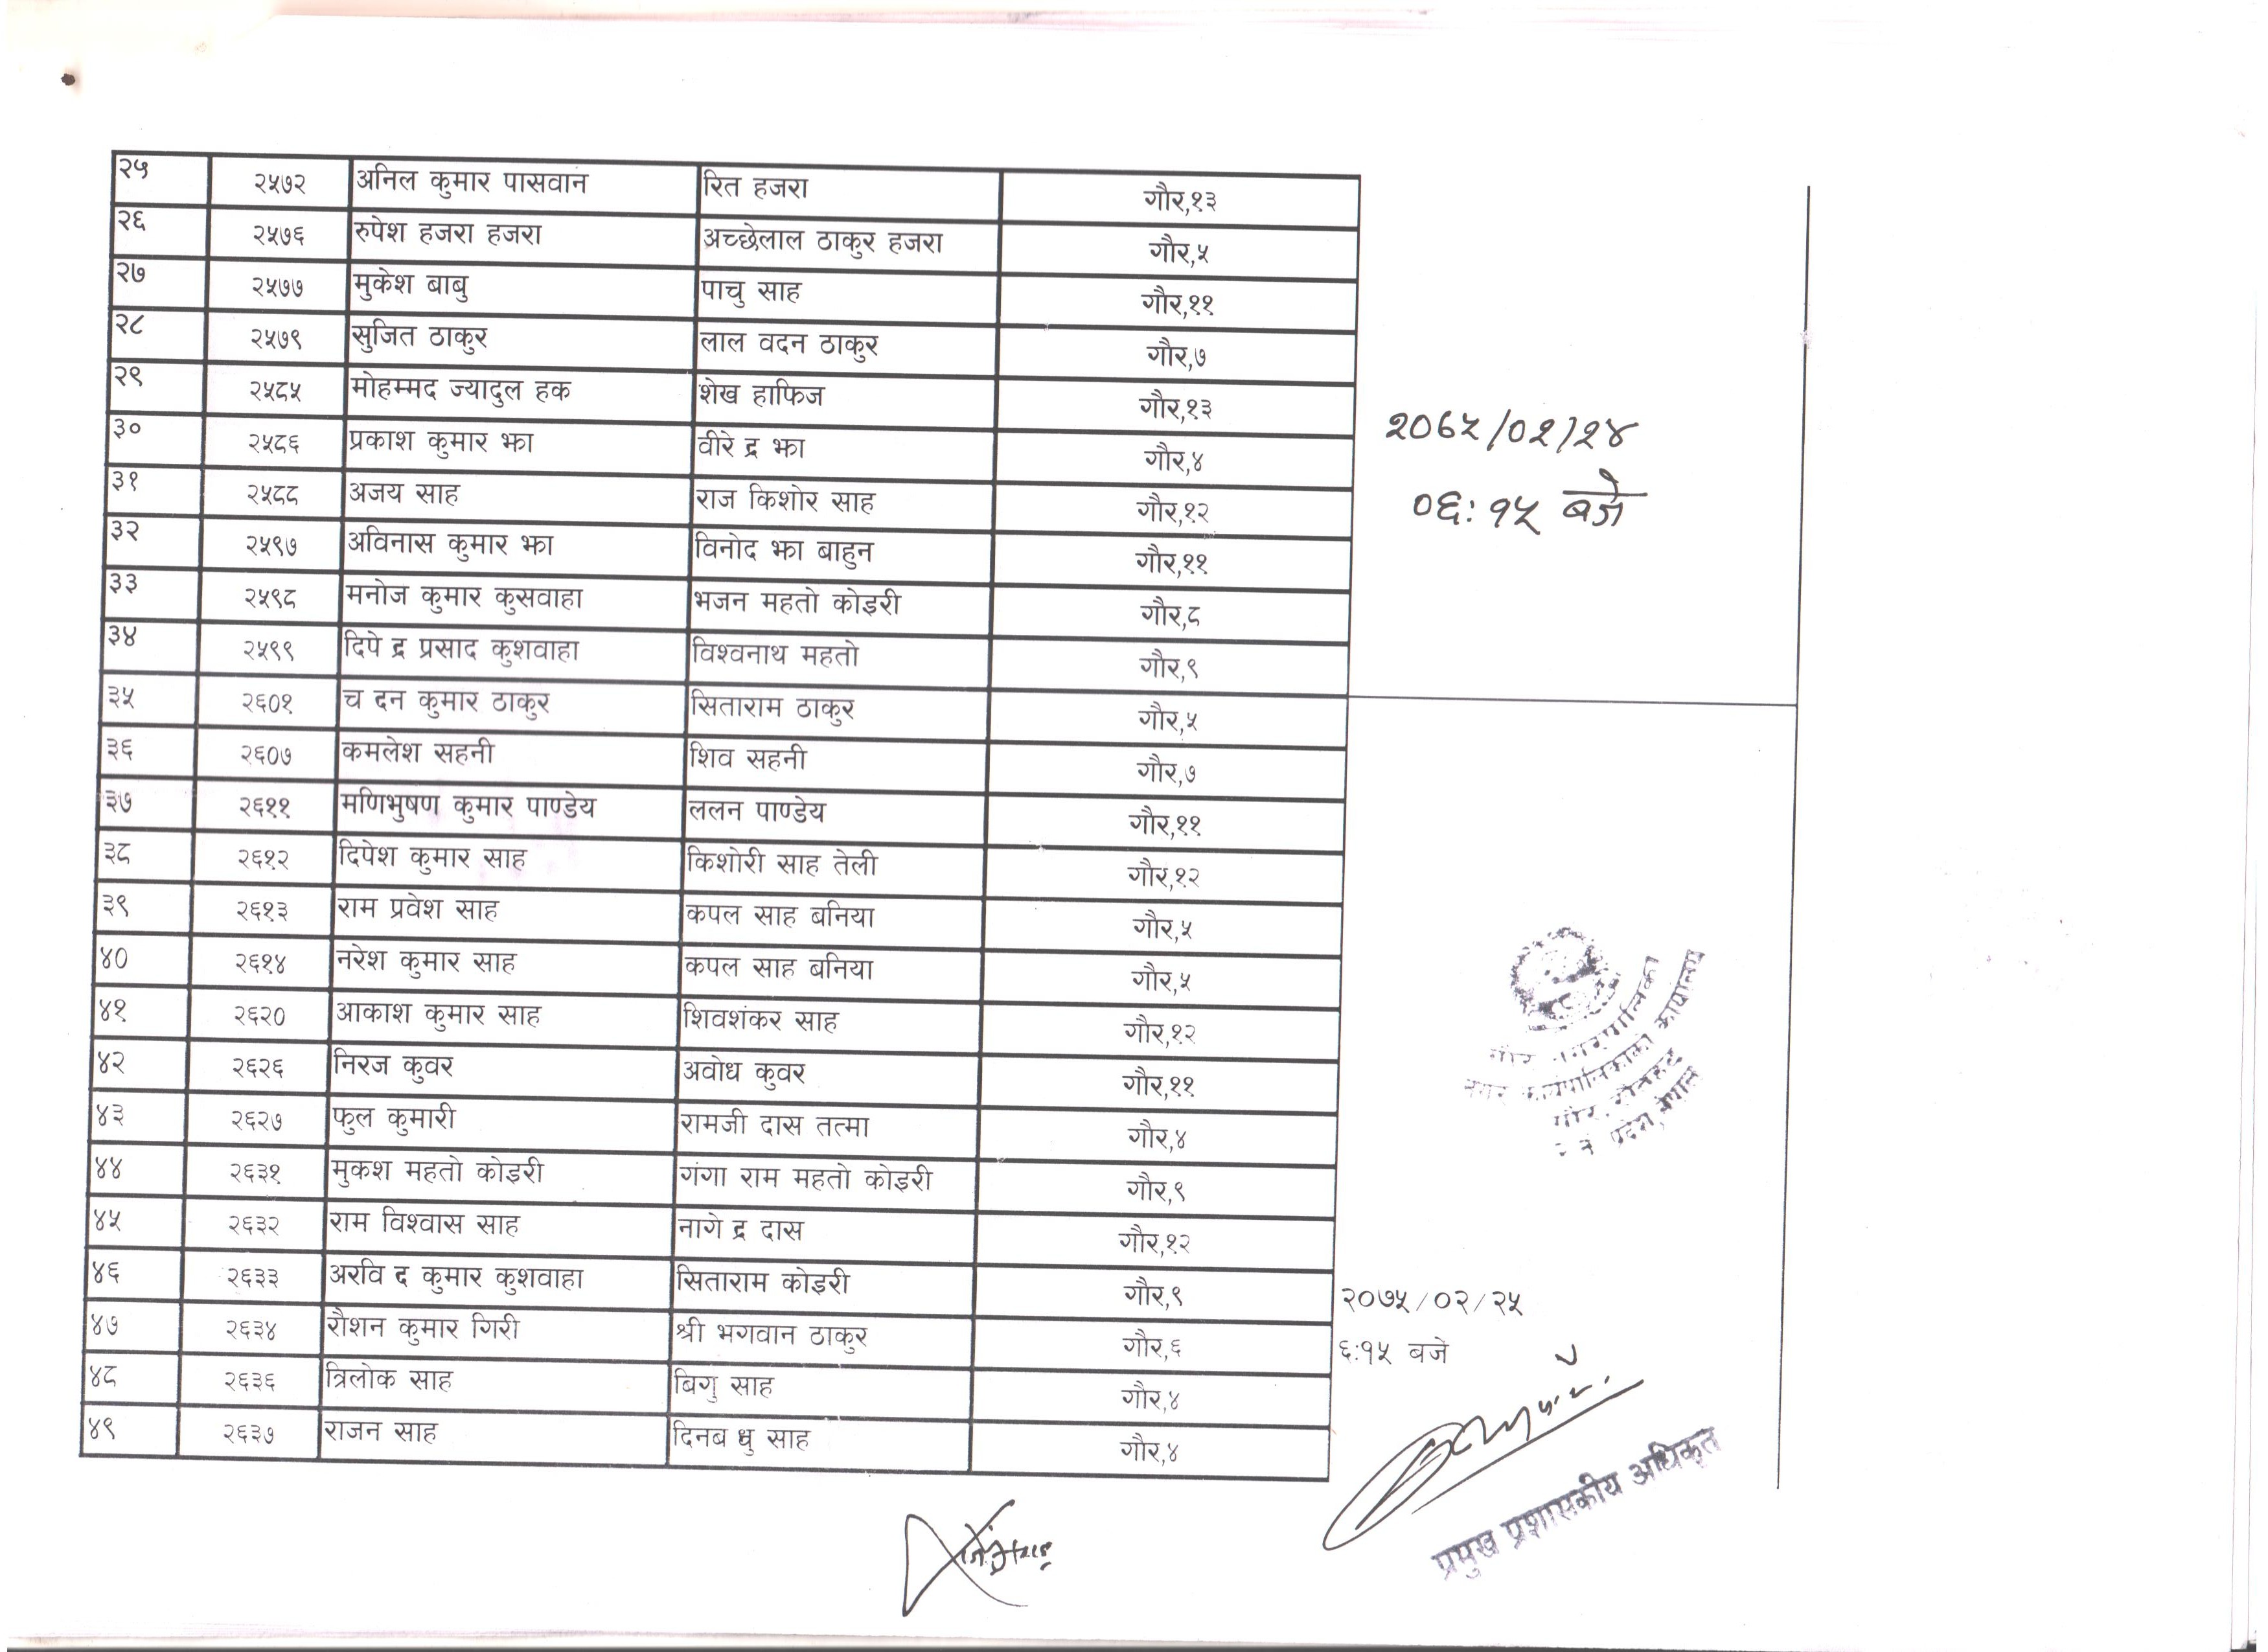 २५ २५७२ अनिल कुमार पासवान रित हजरा गौर,१३
२६ २५७६ रुपेश हजरा हजरा अच्छेलाल ठाकुर हजरा गौर,५
२७ २५७७ मुकेश बाबु पाचु साह गौर,११
२८ २५७९ सुजित ठाकुर लाल वदन ठाकुर गौर,७
२९ २५८५ मोहम्मद ज्यादुल हक शेख हाफिज गौर,१३
३० २५८६ प्रकाश कुमार झा वीरे द्र झा गौर,४
३१ २५८८ अजय साह राज किशोर साह गौर,१२
३२ २५९७ अविनास कुमार झा विनोद झा बाहुन गौर,११
३३ २५९८ मनोज कुमार कुसवाहा भजन महतो कोइरी गौर,८
३४ २५९९ दिपे द्र प्रसाद कुशवाहा विश्वनाथ महतो गौर,९
३५ २६०१ च दन कुमार ठाकुर सिताराम ठाकुर गौर,५
३६ २६०७ कमलेश सहनी शिव सहनी गौर,७
३७ २६११ मणिभुषण कुमार पाण्डेय ललन पाण्डेय गौर,११
३८ २६१२ दिपेश कुमार साह किशोरी साह तेली गौर,१२
३९ २६१३ राम प्रवेश साह कपल साह बनिया गौर,५
४० २६१४ नरेश कुमार साह कपल साह बनिया गौर,५
४१ २६२० आकाश कुमार साह शिवशंकर साह गौर,१२
४२ २६२६ निरज कुवर अवोध कुवर गौर,११
४३ २६२७ फुल कुमारी रामजी दास तत्मा गौर,४
४४ २६३१ मुकश महतो कोइरी गंगा राम महतो कोइरी गौर,९
४५ २६३२ राम विश्वास साह नागे द्र दास गौर,१२
४६ २६३३ अरवि द कुमार कुशवाहा सिताराम कोइरी गौर,९
४७ २६३४ रौशन कुमार गिरी श्री भगवान ठाकुर गौर,६
४८ २६३६ त्रिलोक साह बिगु साह गौर,४
४९ २६३७ राजन साह दिनब धु साह गौर,४
०६:१५ बजे
गौर नगरपालिका
नगर कार्यपालिकाको कार्यालय
गौर, रौतहट
प्रदेश, नेपाल
२०७५/०२/२५
६:१५ बजे
प्रमुख प्रशासकीय अधिकृत